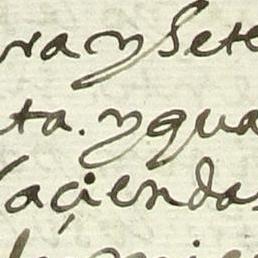 ra y Sete
ta. y qua
haçiendas